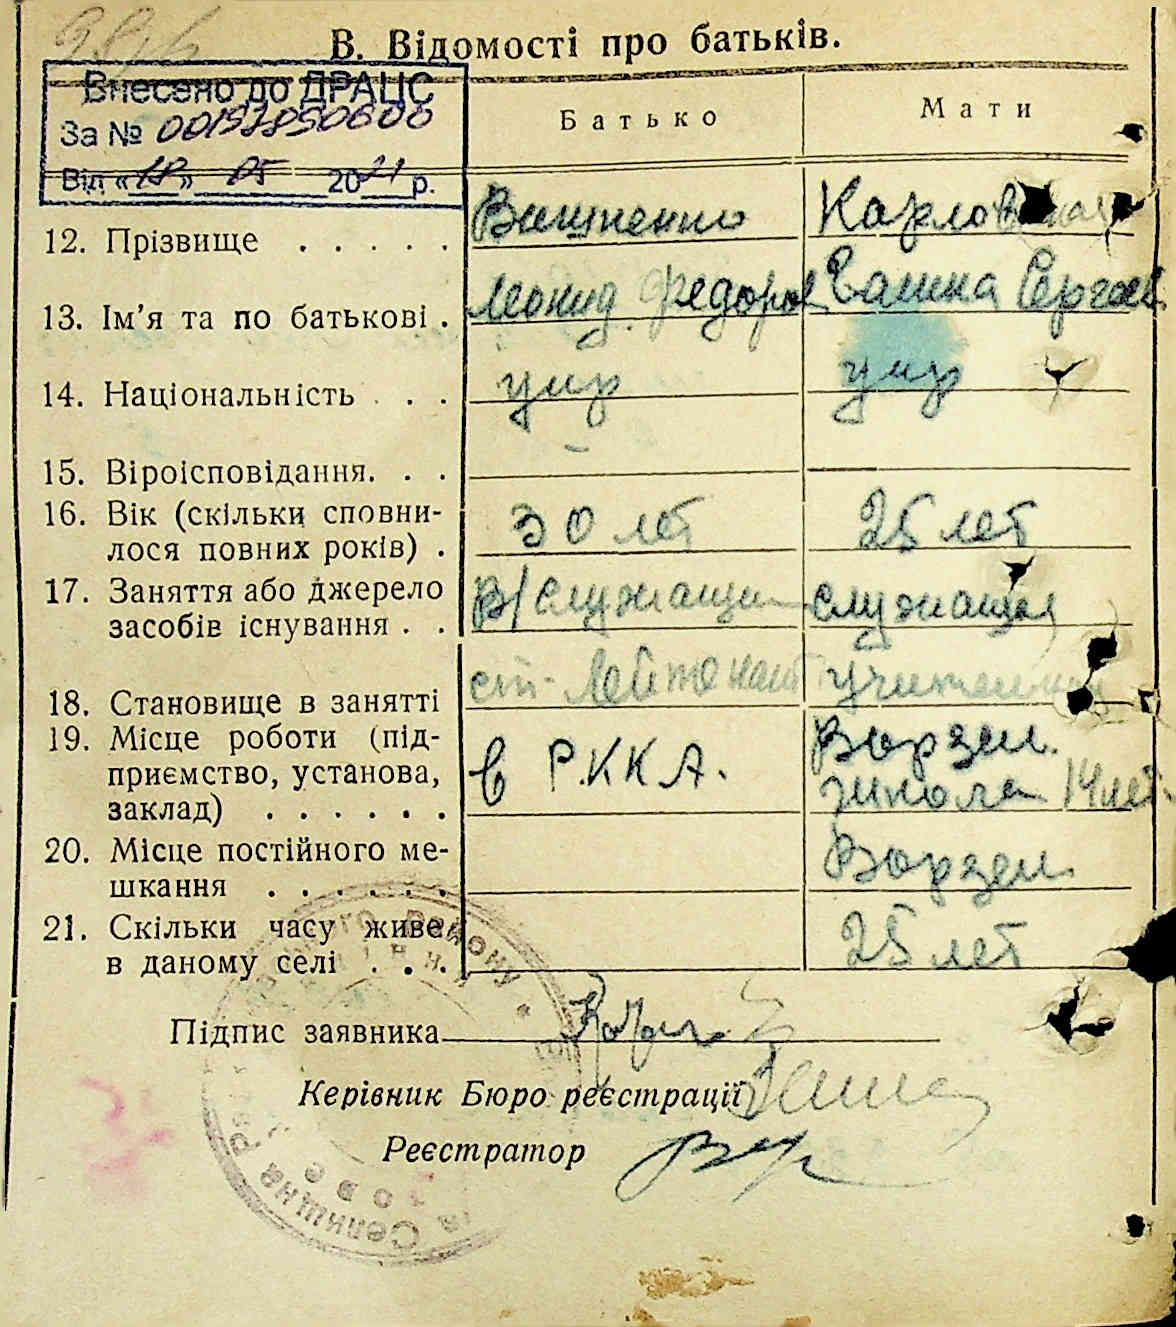 В. Відомості про батьків.
Внесено до ДРАЦС
За № 00197890606
Від «18» 05 2021 р.
Батько
Мати
12. Прізвище . . . . .
Вишненко
13. Ім’я та по батькові .
Леонид Федоров
Галина Сергеев
14. Національність . . .
укр
укр
15. Віроісповідання. . .
-
16. Вік (скільки сповни-
лося повних років) .
30 лет
25 лет
17. Заняття або джерело
засобів існування . .
в/служащий
служащая
18. Становище в занятті
ст. лейтенант
учительница
19. Місце роботи (під-
приємство, установа,
заклад) . . . . . .
в Р.К.К.А.
Ворзел.
школа
20. Місце постійного ме-
шкання . . . . . .
Ворзел
21. Скільки часу живе
в даному селі . . .
25 лет
Підпис заявника
Керівник Бюро реєстрації
Реєстратор
Селищна